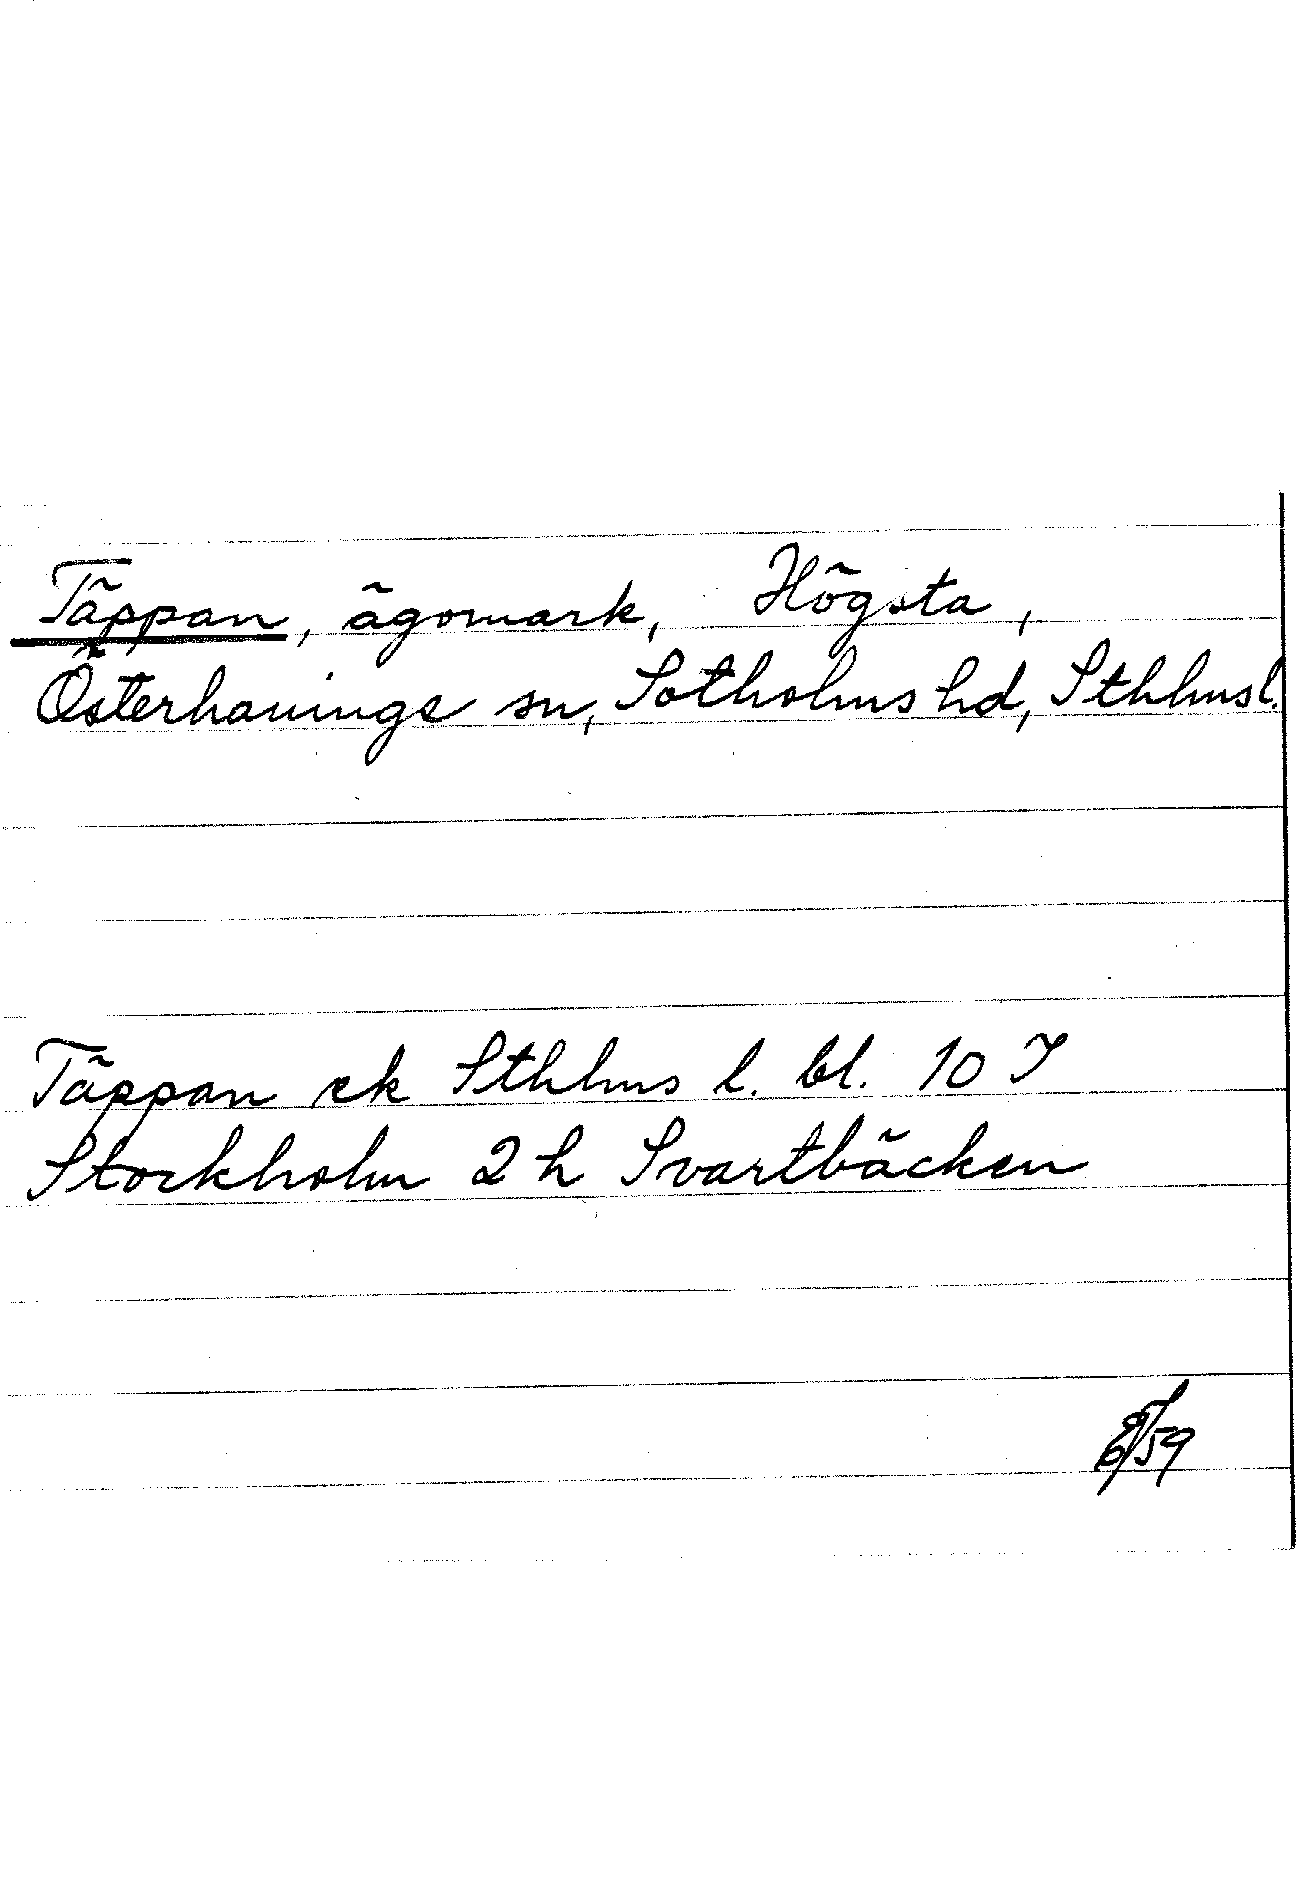 Täppan, ägomark, Högsta,
Österhanings sn, Sotholms hd, Sthlmsl.
Täppan ek Sthlms l. bl. 10 I
Stockholm 2 h Svartbäcken